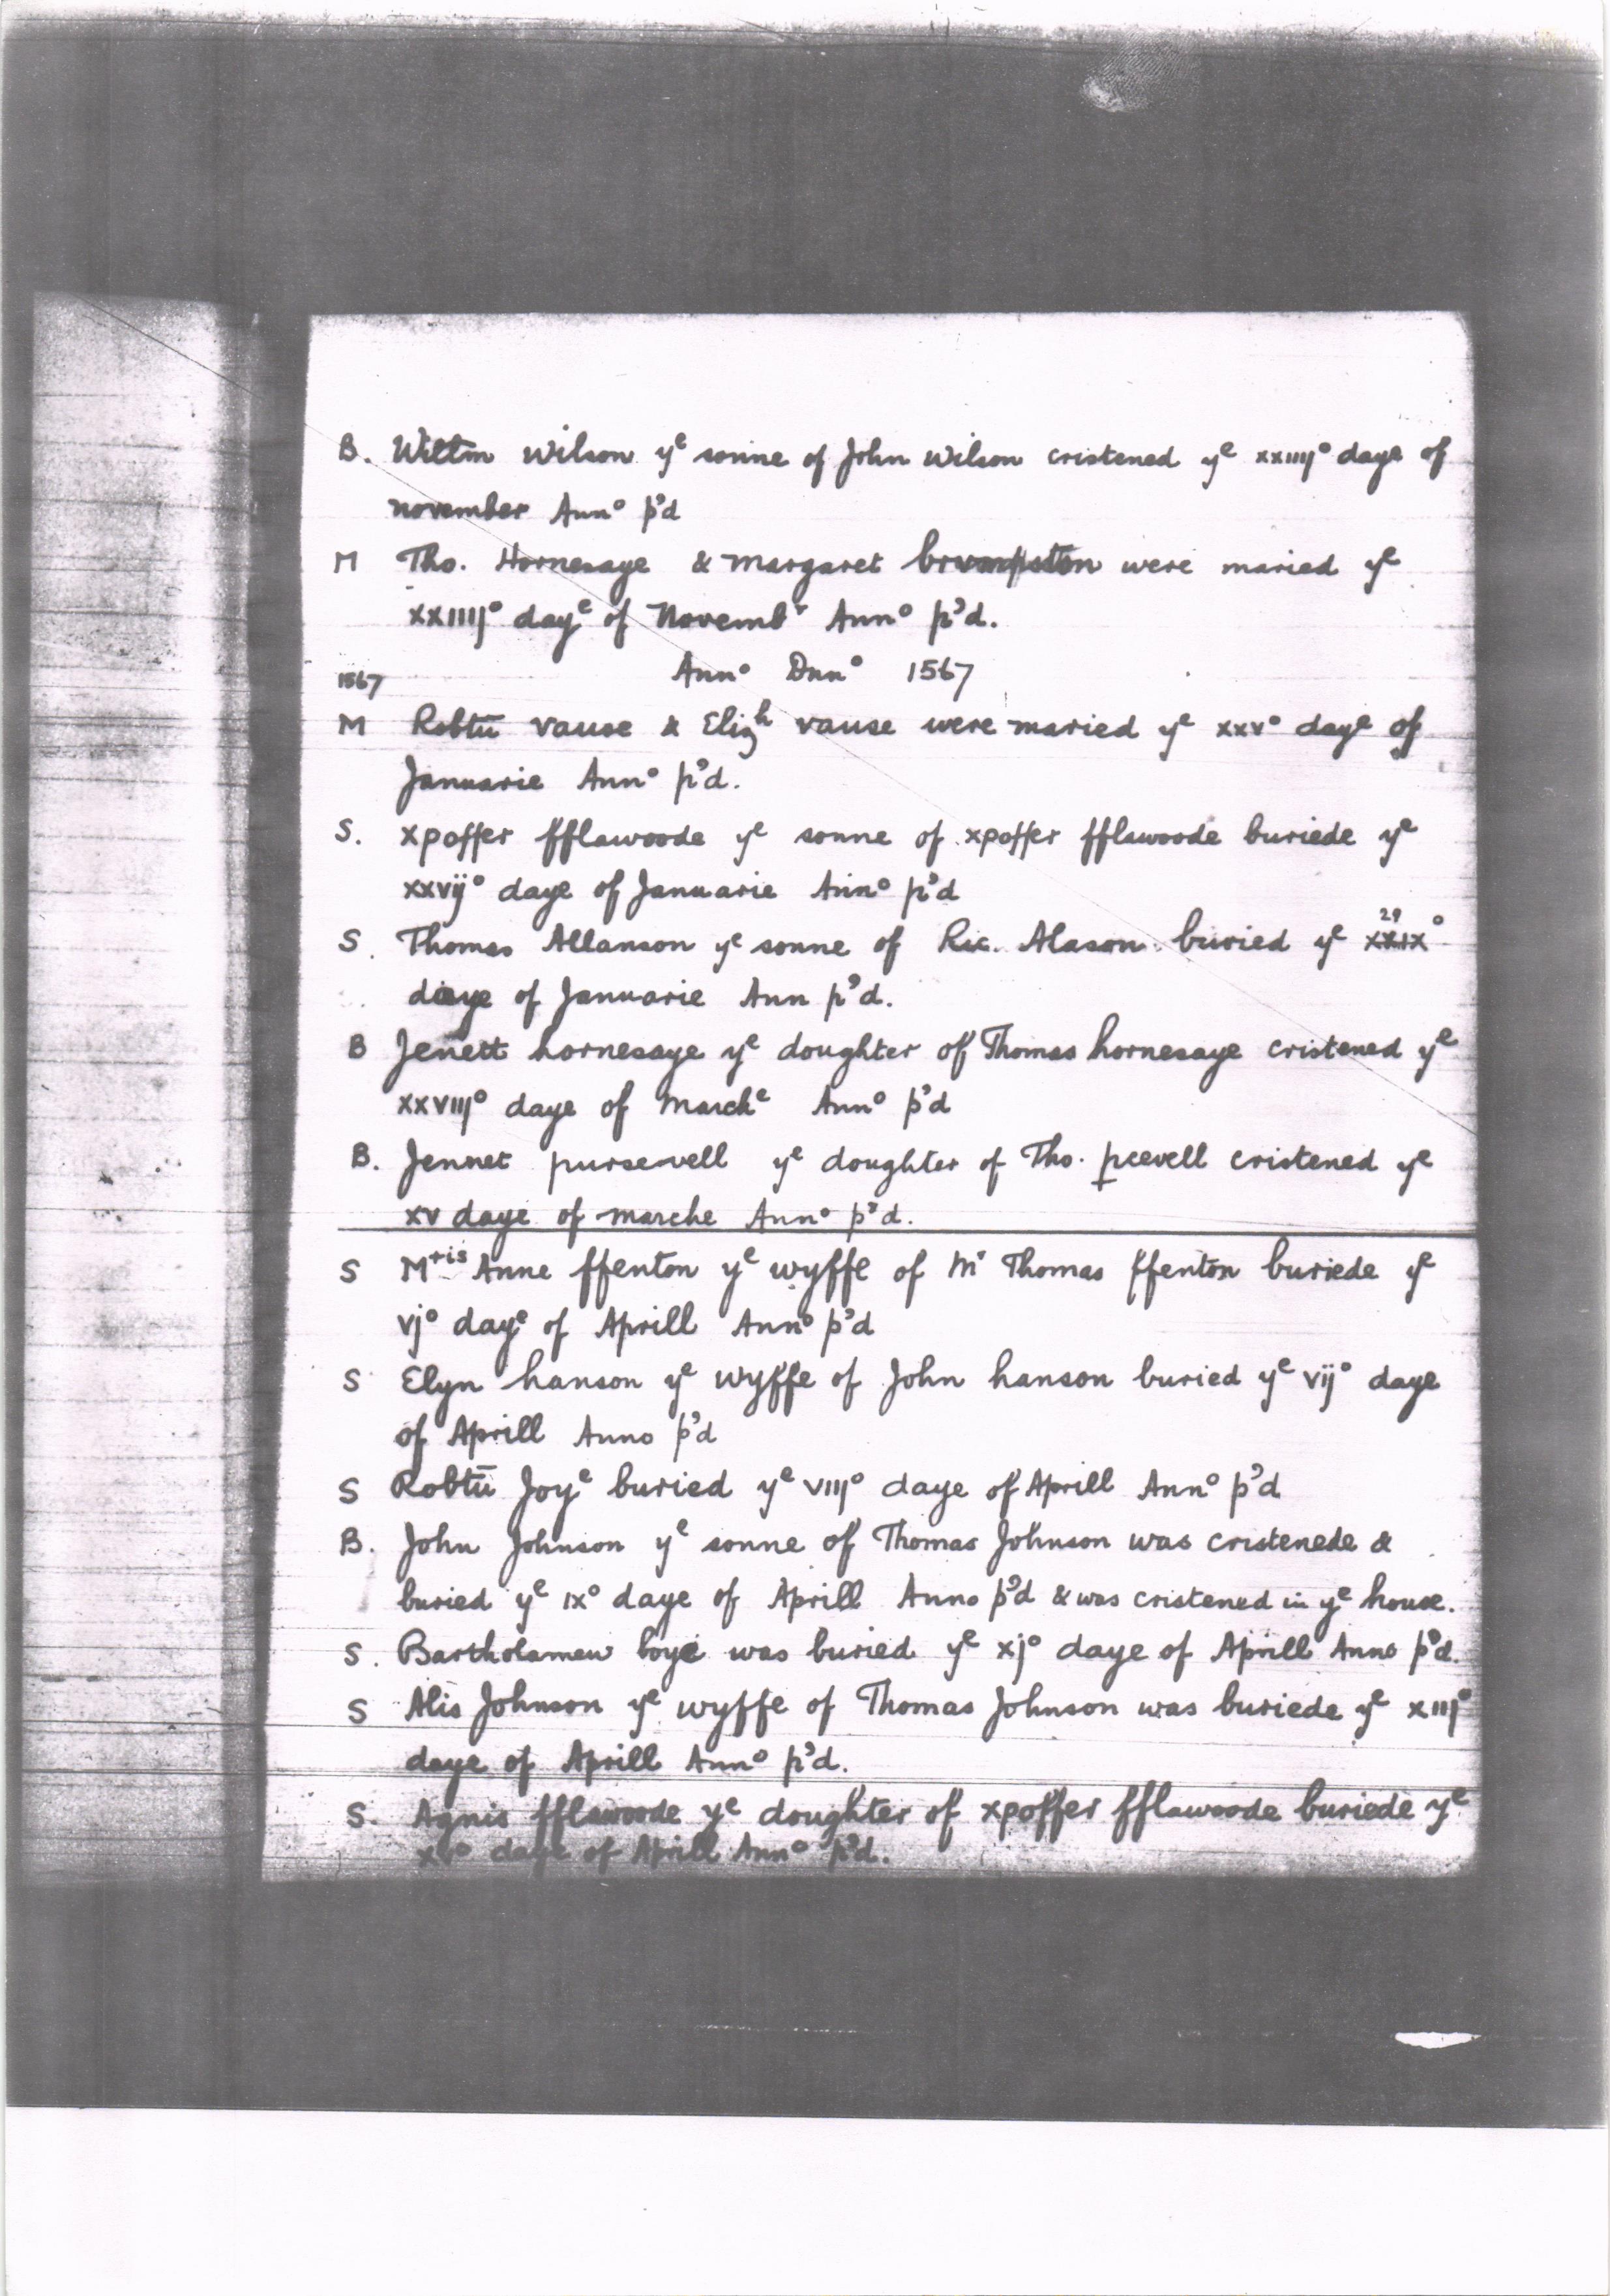 B. Willm Wilson yᵉ sonne of John Wilson cristened yᵉ xxiiijº daye of
november Annº p'd
M Tho. Hornesaye & Margaret brumpston were maried yᵉ
xxiiijº dayᵉ of Novembʳ Annº p'd.
Annº Dnnº 1567
1567
M Robtū Vause & Elizʰ vause were maried yᵉ xxvº dayᵉ of
Januarie Annº p'd.
S. xpoffer fflawoode yᵉ sonne of xpoffer fflawoode buriede yᵉ
xxvijº daye of Januarie Annº p'd
29
S. Thomas Allanson yᵉ sonne of Ric. Alason buried yᵉ xxixº
daye of Januarie Ann p'd.
B Jenett hornesaye yᵉ doughter of Thomas hornesaye cristened yᵉ
xxviijº daye of Marchᵉ Annº p'd
B. Jennet pursevell yᵉ doughter of Tho. pcevell cristened yᵉ
xv daye of marche Annº p'd.
S Mʳⁱˢ Anne ffenton yᵉ wyffe of Mʳ Thomas ffenton buriede yᵉ
vjº dayᵉ of Aprill Annº p'd
S Elyn hanson yᵉ wyffe of John hanson buried yᵉ vijº daye
of Aprill Anno p'd
S Robtū Joyᵉ buried yᵉ viijº daye of Aprill Annº p'd
B. John Johnson yᵉ sonne of Thomas Johnson was cristenede &
buried yᵉ ixº daye of Aprill Anno p'd & was cristened in yᵉ house.
S. Bartholamew boye was buried yᵉ xjº daye of Aprill Anno p'd.
S Alis Johnson yᵉ wyffe of Thomas Johnson was buriede yᵉ xiijº
daye of Aprill Annº p'd.
S. Agnis fflawoode yᵉ doughter of xpoffer fflawoode buriede yᵉ
xvº daye of Aprill Annº p'd.